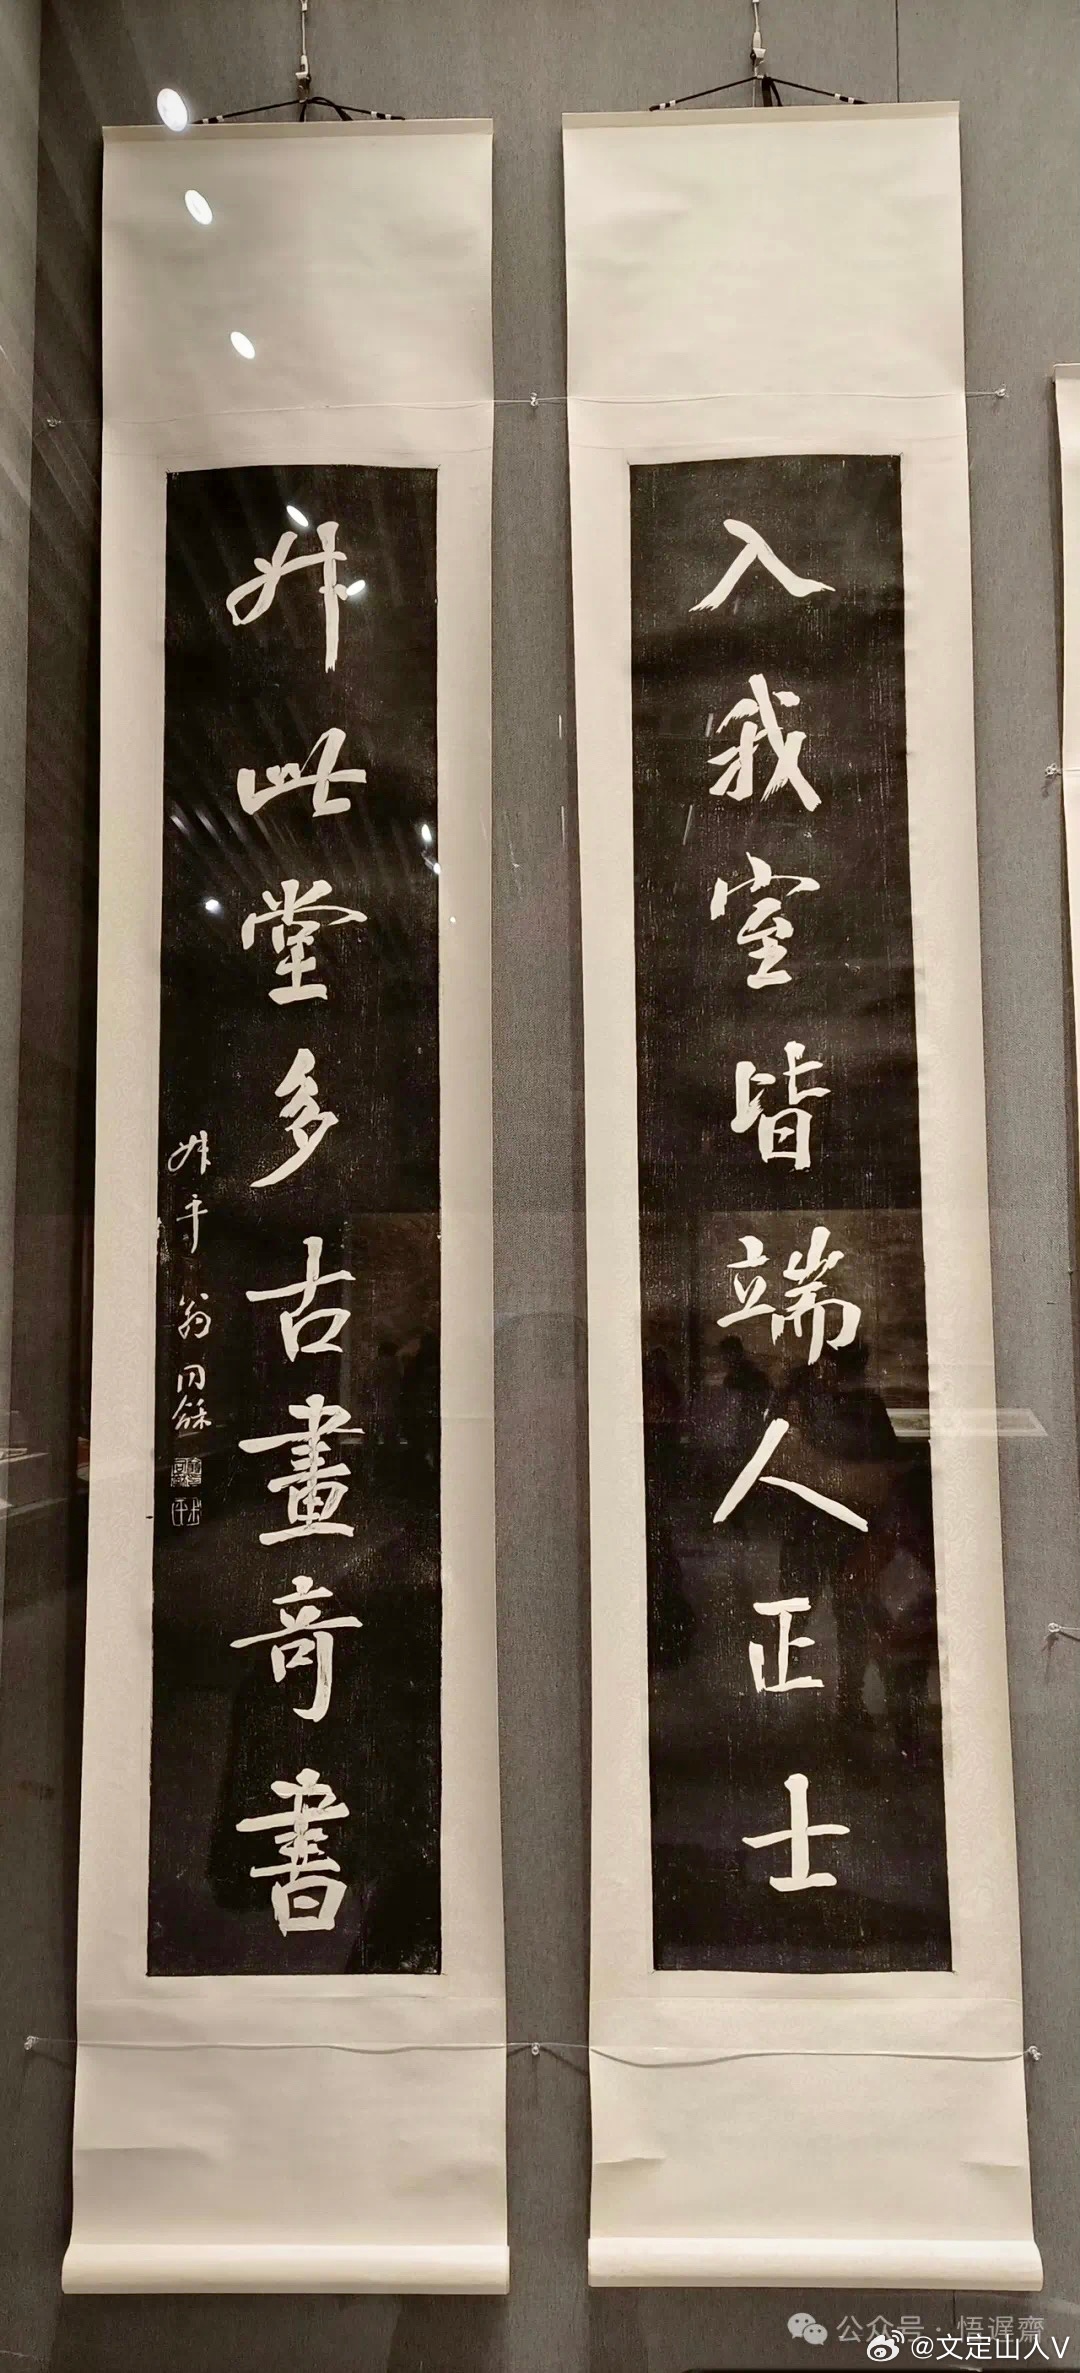 入我室皆端人正士
升此堂多古畫奇書
叔平翁同龢
公众号·悟遅齋
@文定山人V